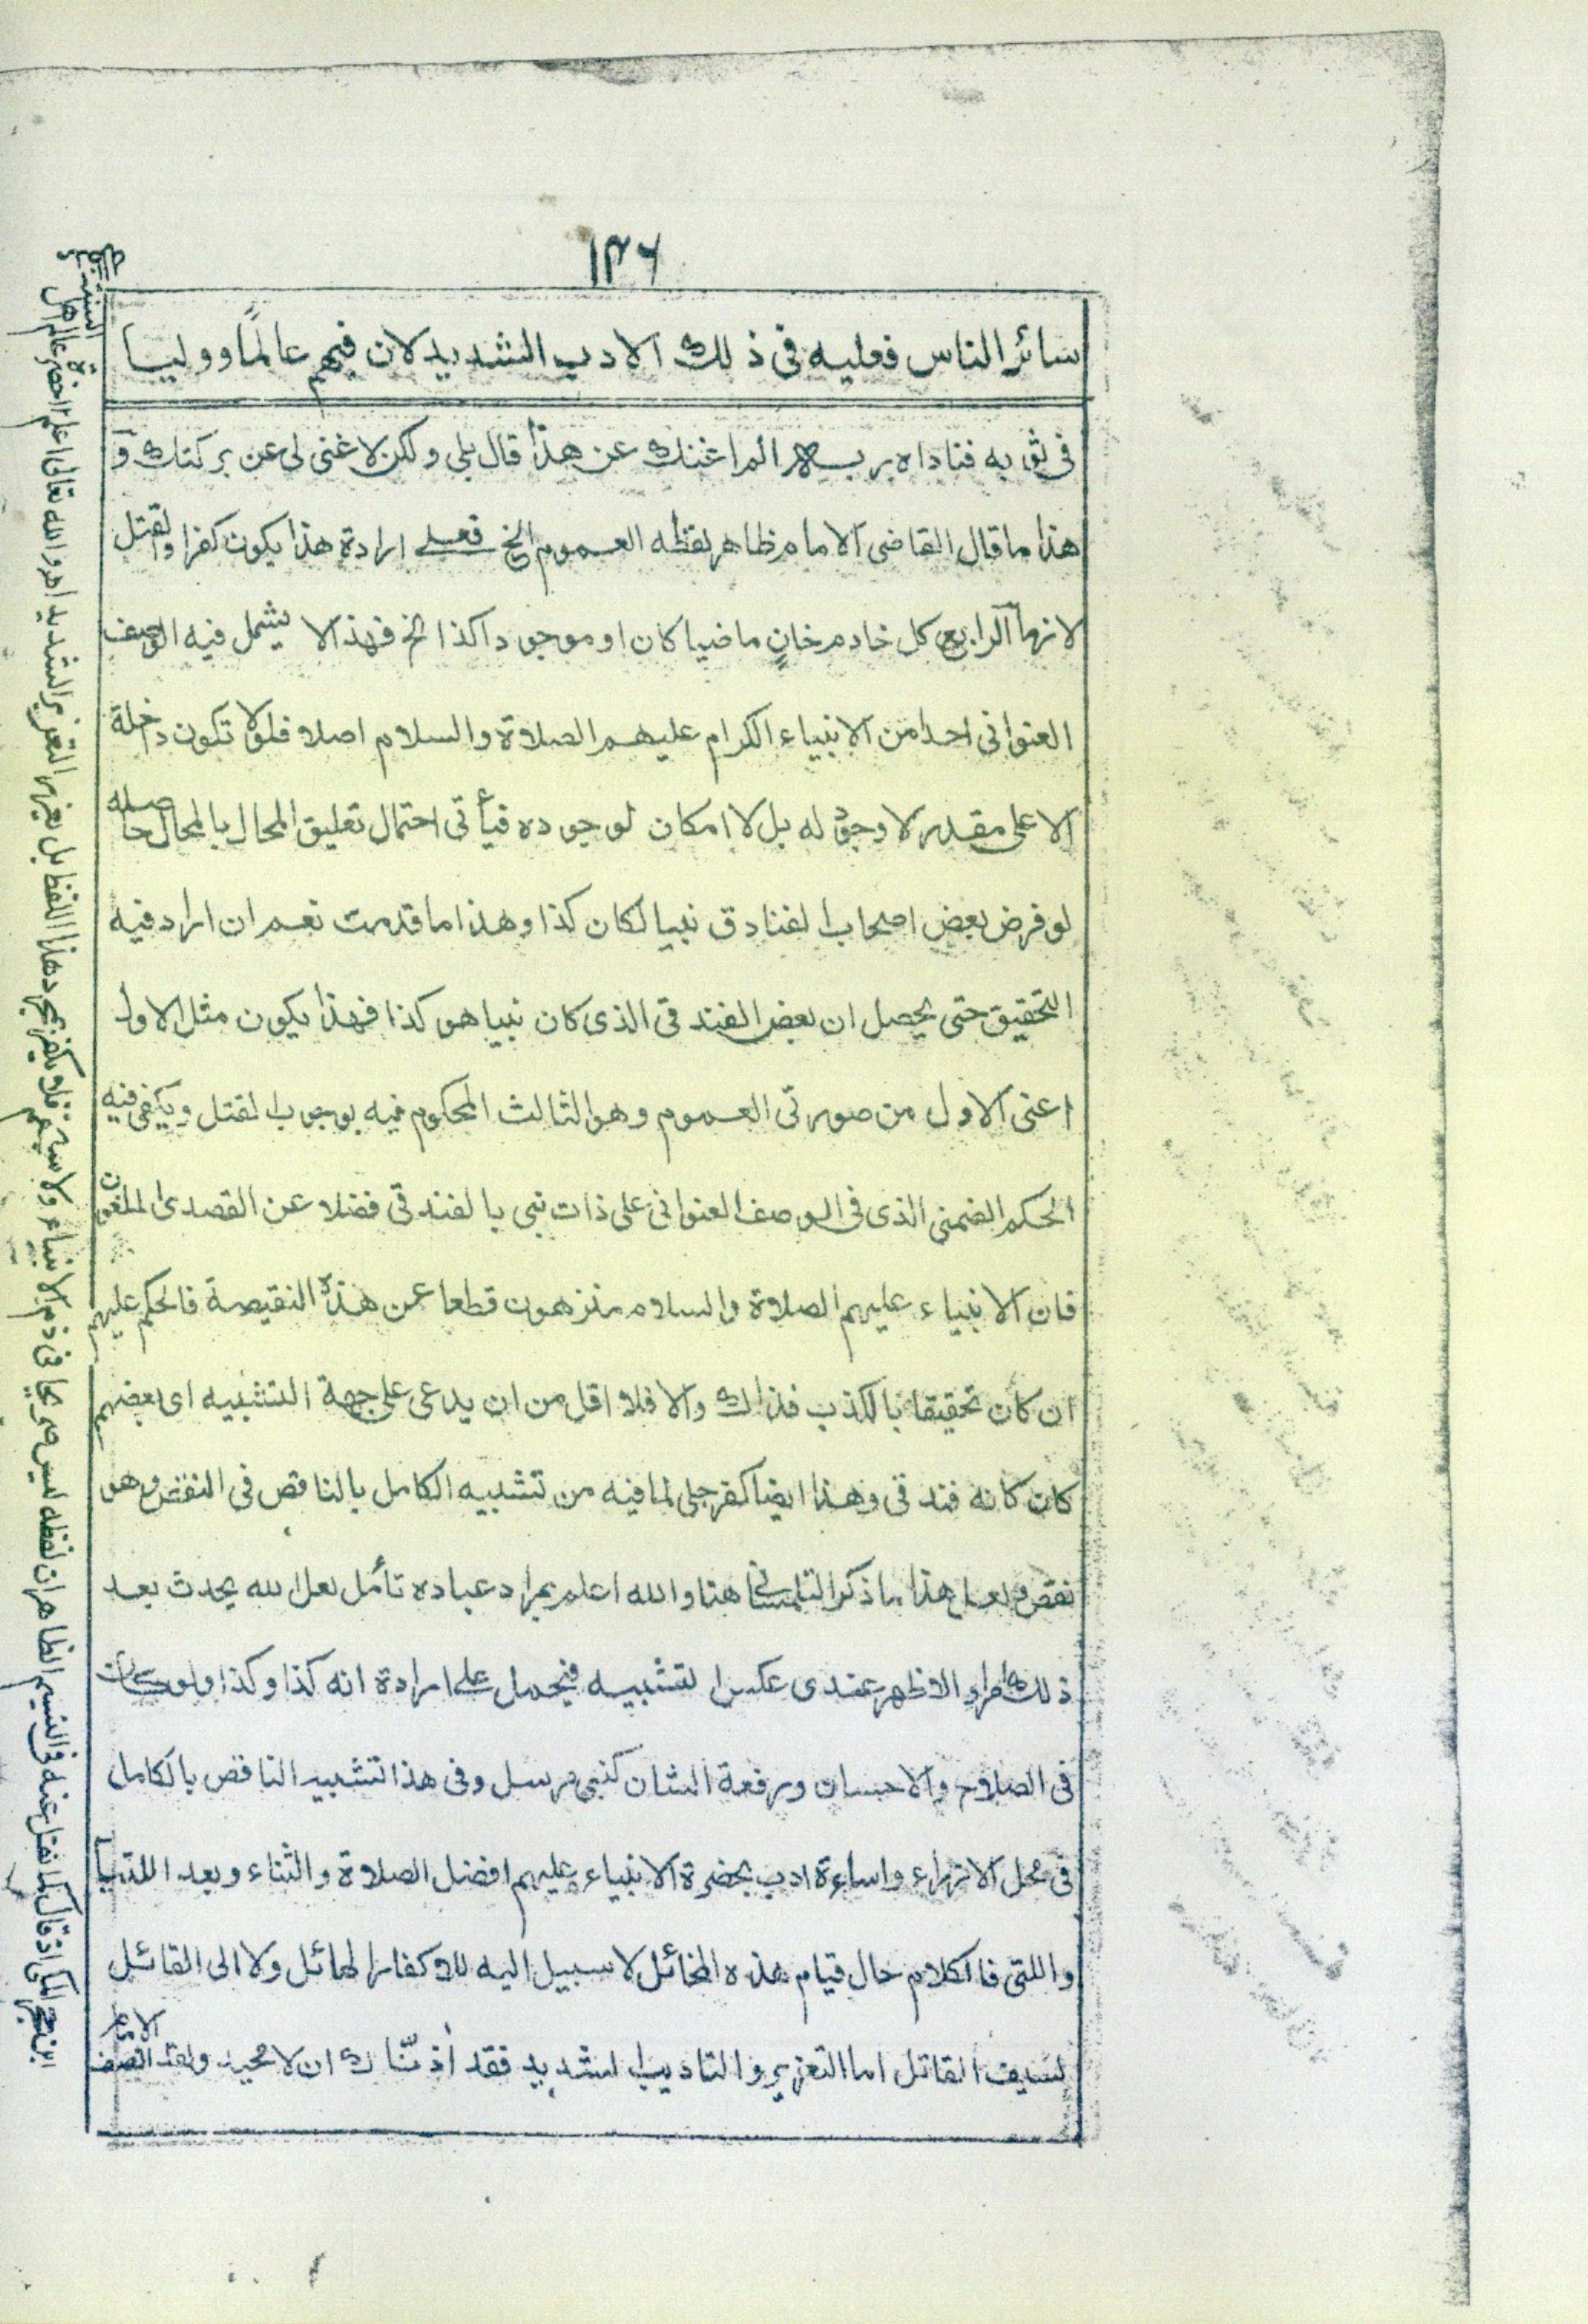 ١٣٦
سائر الناس فعليه فى ذلك الادب الشديد لان فيهم عالمًا ووليا
فى ثوبه فناداه ربه الم اغنك عن هذا قال بلى ولكن لا غنى لى عن بركتك و
هذا ما قال القاضى الامام ظاهر لفظه العموم الخ فعلى ارادة هذا يكون كفرا والقتل
لازما الرابع كل خادم خان ماضيا كان او موجودا كذا الخ فهذا لا يشمل فيه الوصف
العنوانى احدا من الانبياء الكرام عليهم الصلاة والسلام اصلا فلو لا تكون داخلة
الا على مقدر لا وجود له بل لا امكان لوجوده فيأتى احتمال تعليق المحال بالمحال حاصله
لو فرض بعض اصحاب الفنادق نبيا لكان كذا وهذا ما قدمت نعم ان اراد فيه
التحقيق حتى يحصل ان بعض الفندقى الذى كان نبيا هو كذا فهذا يكون مثل الاول
اعنى الاول من صورتى العموم وهو الثالث المحكوم فيه بوجوب القتل ويكفى فيه
الحكم الضمنى الذى فى الوصف العنوانى على ذات نبى بالفندقى فضلا عن القصدى الملعون
فان الانبياء عليهم الصلاة والسلام منزهون قطعا عن هذه النقيصة فالحكم عليهم
ان كان تحقيقا بالكذب فذاك والا فلا اقل من ان يدعى على جهة التشبيه اى بعضهم
كان كانه فندقى وهذا ايضا كفر جلى لما فيه من تشبيه الكامل بالناقص فى النقص وهو
نقص ولعل هذا ما ذكر التلمسانى هنا والله اعلم بمراد عباده تأمل لعل الله يحدث بعد
ذلك امرا والاظهر عندى عكس التشبيه فيحمل على ارادة انه كذا وكذا ولو كان
فى الصلاح والاحسان ورفعة الشان كنبى مرسل وفى هذا تشبيه الناقص بالكامل
فى محل الازراء واساءة ادب بحضرة الانبياء عليهم افضل الصلاة والثناء وبعد اللتيا
واللتى فالكلام حال قيام هذه المخائل لا سبيل اليه للاكفار الهائل ولا الى القائل
لسيف القاتل اما التعزير والتاديب الشديد فقد اذنّاك ان لا محيد ولقد انصف الامام
ابن حجر المكى اذ قال كما نقل عنه فى النسيم الظاهر ان لفظه ليس صريحا فى ذم الانبياء ولا سبهم فلا يكفر بمجرد هذا اللفظ بل يعزر التعزير الشديد اهـ والله تعالى اعلم